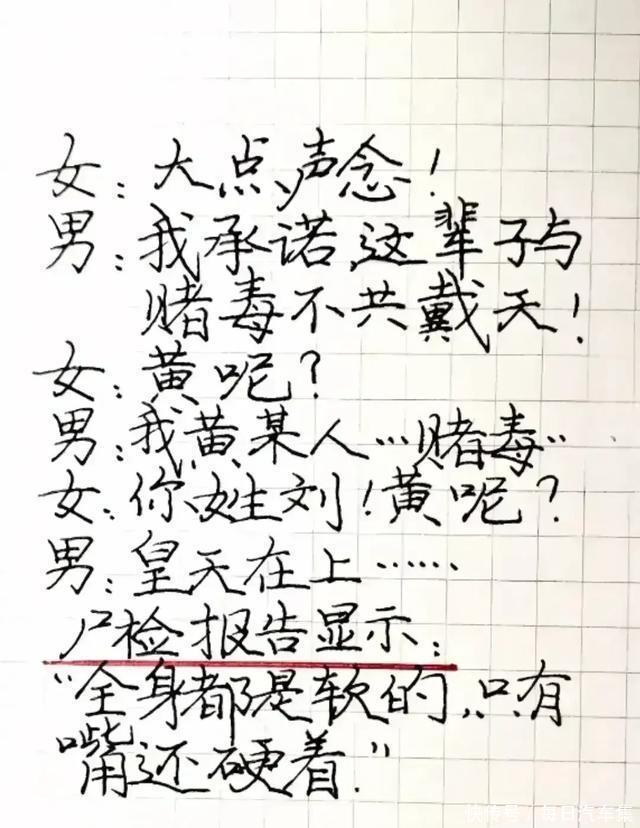 女：大点声念！
男：我承诺这辈子与
赌毒不共戴天！
女：黄呢？
男：我黄某人…赌毒…
女：你姓刘！黄呢？
男：皇天在上……
尸检报告显示：
“全身都是软的，只有
嘴还硬着.”
快传号/每日汽车集